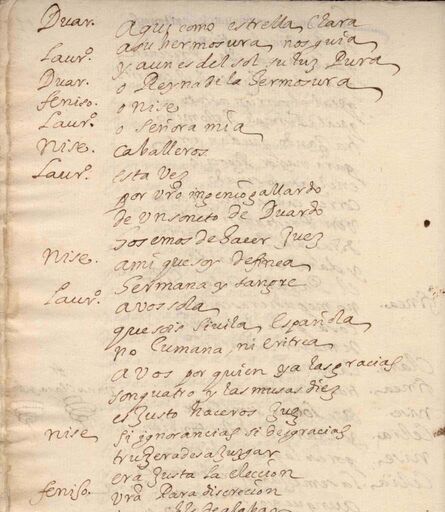 Duar. Aqui como estrella clara
a su hermosura nos guia
Laur.º y aun es del sol su luz pura
Duar. o Reyna de la hermosura
feniso. o nise
Laur.º o señora mia
Nise. caballeros
Laur.º esta vez
por vro ingenio gallardo
de un soneto de Duardo
os emos de hacer juez
nise. a mi que soy de finea
hermana y sangre
Laur.º a vos sola
que sois sivila Española
no Cumana, ni eritrea
a vos por quien ya las gracias
son quatro y las musas diez
es justo haceros juez
nise si ignorancias si desgracias
truxerades a juzgar
era justa la eleccion
feniso. vra Para discrecion